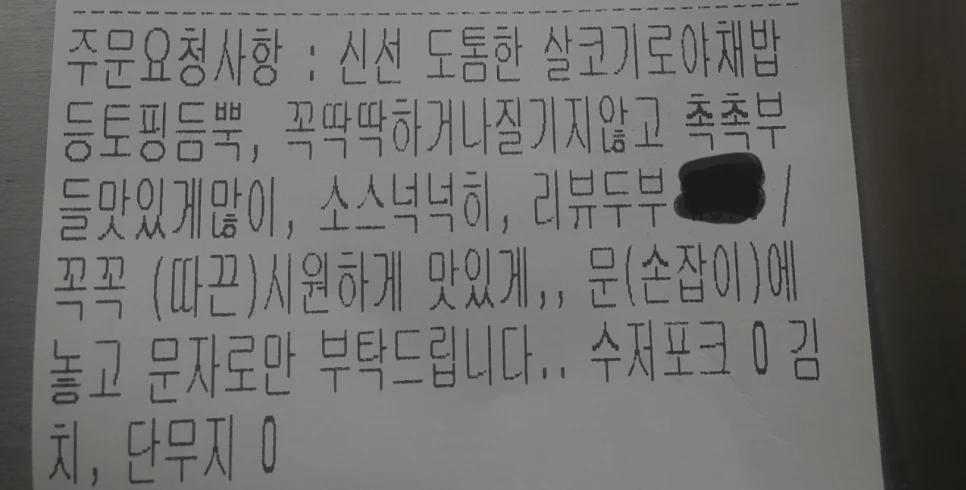 주문요청사항 : 신선 도톰한 살코기로야채밥
등토핑듬뿍, 꼭딱딱하거나질기지않고 촉촉부
들맛있게많이, 소스넉넉히, 리뷰두부 /
꼭꼭 (따끈)시원하게 맛있게,, 문(손잡이)에
놓고 문자로만 부탁드립니다.. 수저포크 0 김
치, 단무지 0